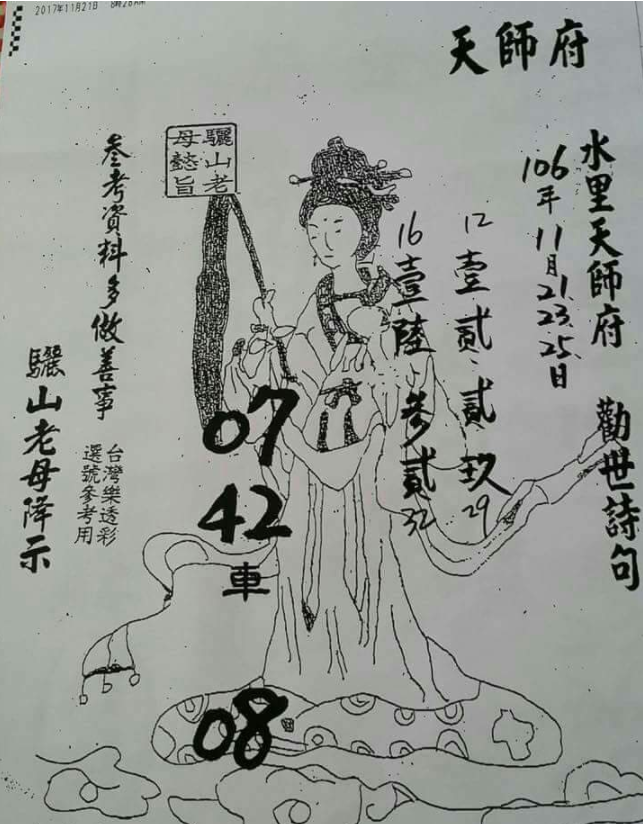 2017年11月21日
天師府
水里天師府 勸世詩句
106年11月21.23.25.日
12壹貳、貳玖29
16壹陸、參貳32
驪山老
母懿旨
07
42
車
08
參考資料多做善事
台灣樂透彩
選號參考用
驪山老母降示